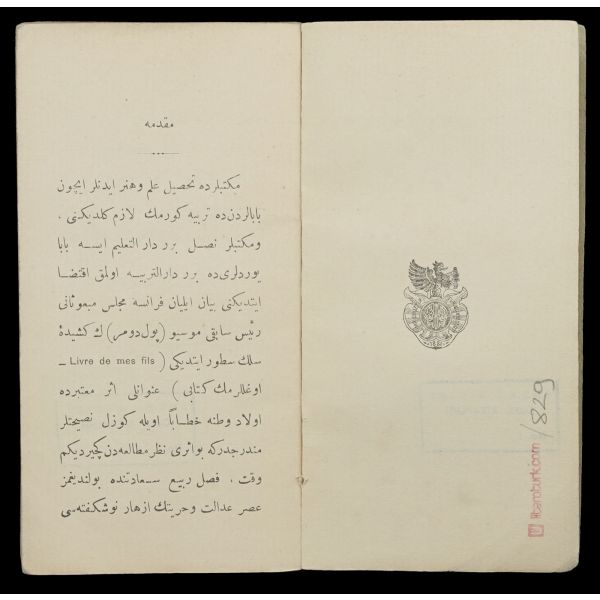 مقدمه
مكتبلرده تحصیل علم وهنر ایدنلر ایچون
بابالردن ده تربیه كورمك لازم كلدیكنی ،
ومكتبلر نصل برر دار التعلیم ایسه بابا
یوردلری ده برر دارالتربیه اولمق اقتضا
ایتدیكنی بیان ایلیان فرانسه مجلس مبعوثانی
رئیس سابقی موسیو (پول دومر) ك كشیدهٔ
سلك سطور ایتدیكی (Livre de mes fils –
اوغللرمك كتابی) عنوانلی اثر معتبرده
اولاد وطنه خطاباً اویله كوزل نصیحتلر
مندرجدركه بواثری نظر مطالعه دن كچیردیكم
وقت ، فصل ربیع سعادتنده بولندیغمز
عصر عدالت وحریتك ازهار نوشكفته سی
/829
libraturk.com